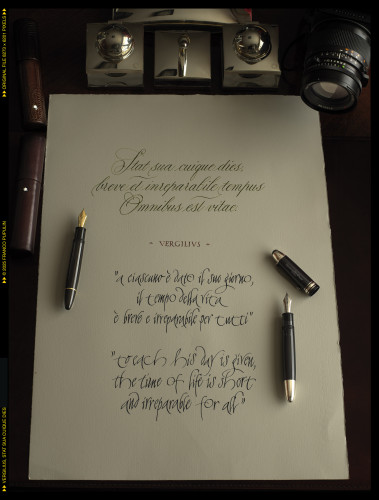 Stat sua cuique dies,
breve et inreparabile tempus
Omnibus est vitae.
- VERGILIVS -
"a ciascuno è dato il suo giorno,
il tempo della vita
è breve e irreparabile per tutti"
"to each his day is given,
the time of life is short
and irreparable for all"
ORIGINAL FILE 6373 × 8281 PIXELS
© 2025 FRANCO PUPULIN
VERGILIUS, STAT SUA CUIQUE DIES